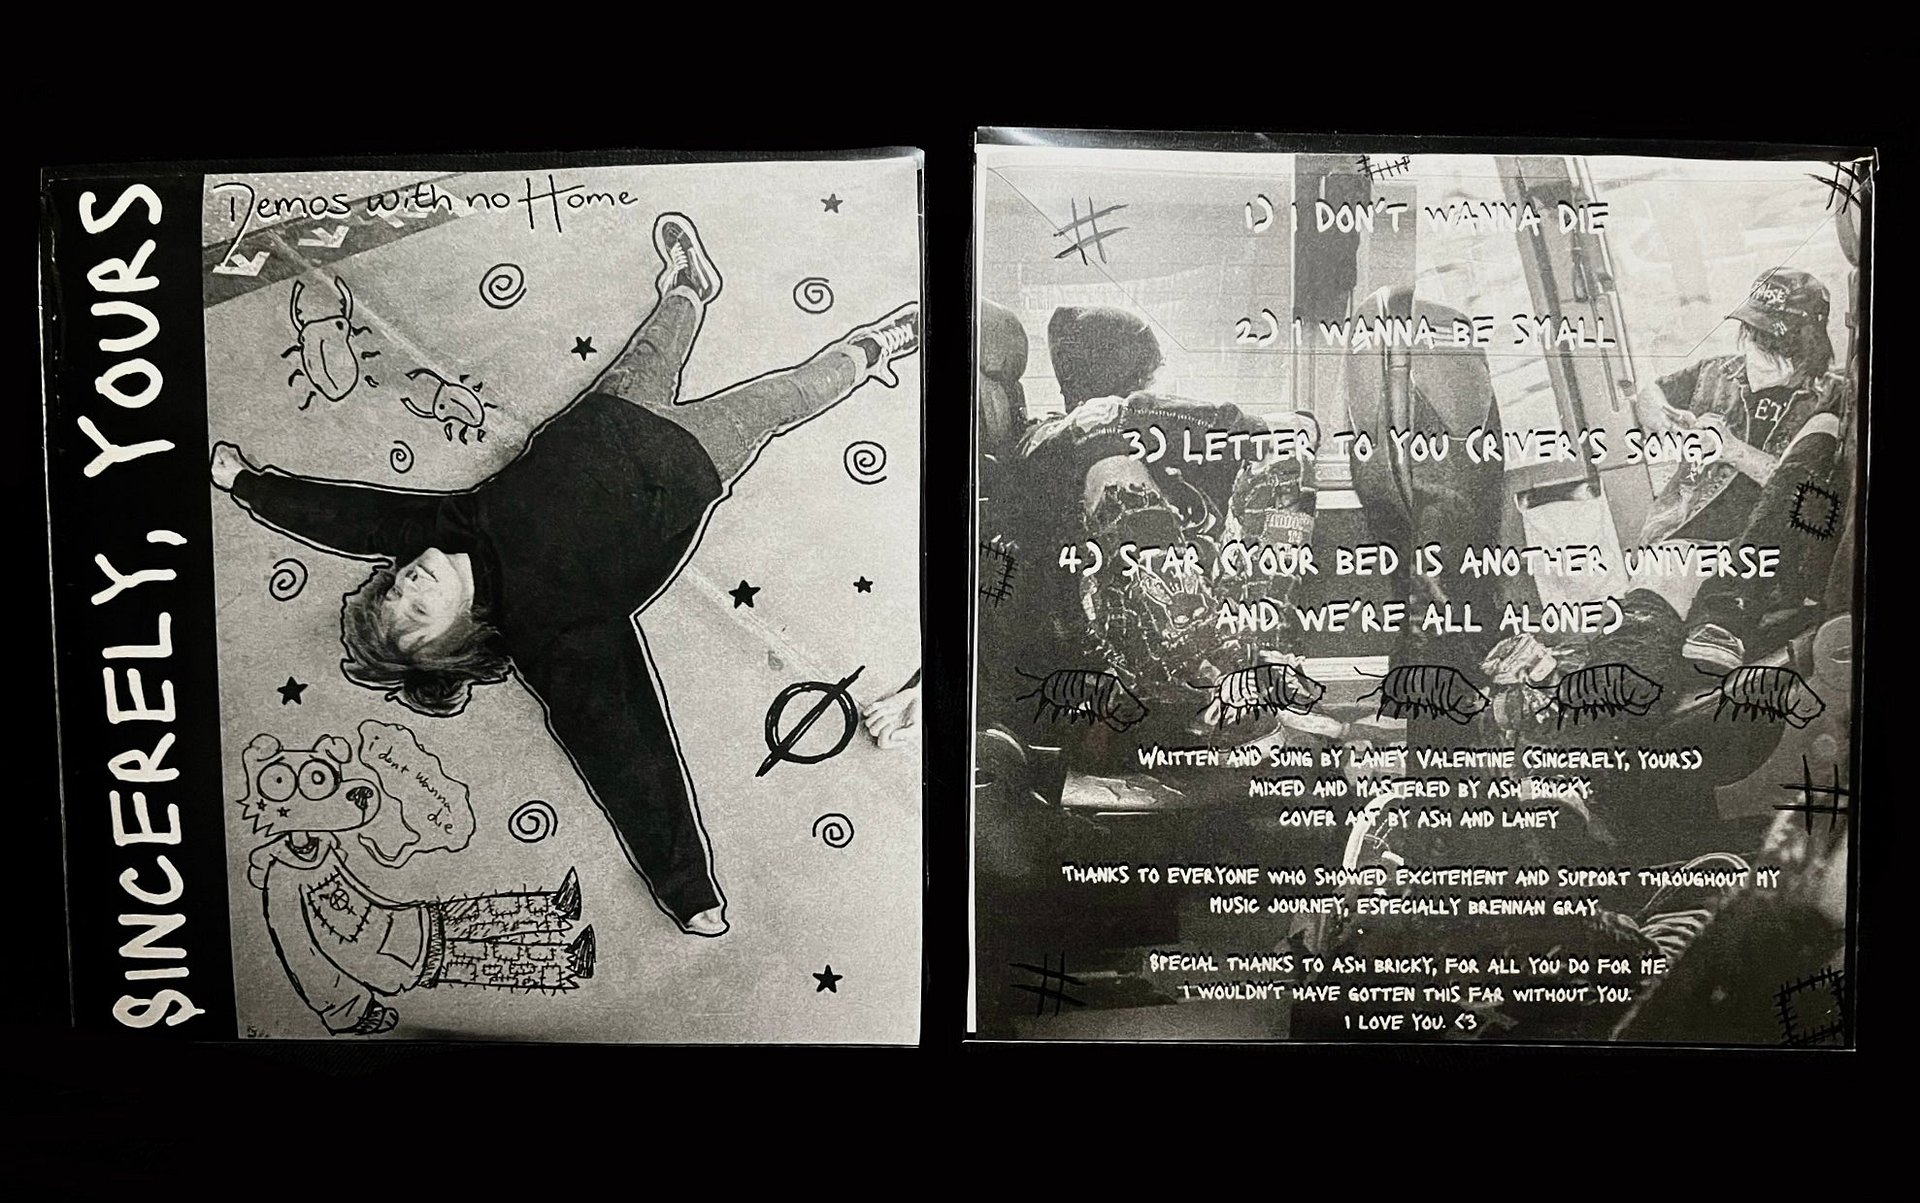 SINCERELY, YOURS
Demos with no Home
i dont wanna die
1) I DON'T WANNA DIE
2) I WANNA BE SMALL
3) LETTER TO YOU (RIVER'S SONG)
4) STAR (YOUR BED IS ANOTHER UNIVERSE
AND WE'RE ALL ALONE)
WRITTEN AND SUNG BY LANEY VALENTINE (SINCERELY, YOURS)
MIXED AND MASTERED BY ASH BRICKY
COVER ART BY ASH AND LANEY
THANKS TO EVERYONE WHO SHOWED EXCITEMENT AND SUPPORT THROUGHOUT MY
MUSIC JOURNEY, ESPECIALLY BRENNAN GRAY
SPECIAL THANKS TO ASH BRICKY, FOR ALL YOU DO FOR ME.
I WOULDN'T HAVE GOTTEN THIS FAR WITHOUT YOU.
I LOVE YOU. <3